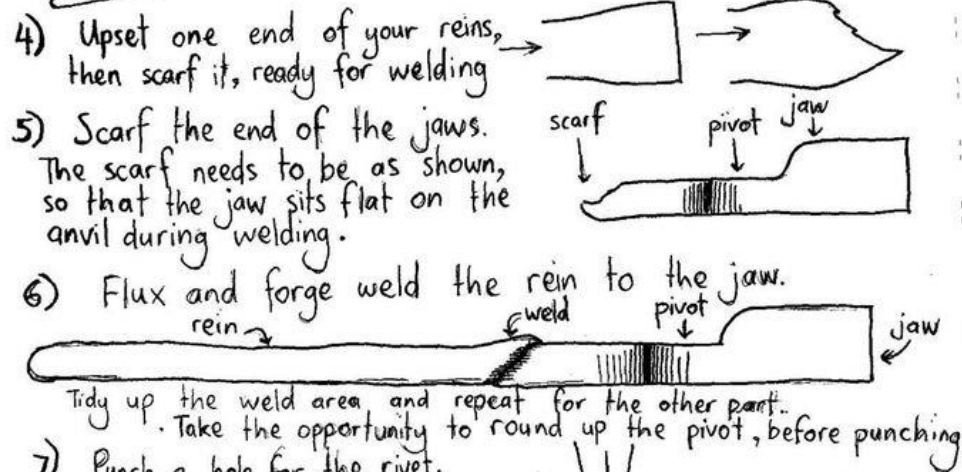 4) Upset one end of your reins,
then scarf it, ready for welding
5) Scarf the end of the jaws.
The scarf needs to be as shown,
so that the jaw sits flat on the
anvil during welding.
scarf
pivot
jaw
6) Flux and forge weld the rein to the jaw.
rein
weld
pivot
jaw
Tidy up the weld area and repeat for the other part..
. Take the opportunity to round up the pivot, before punching
7) Punch a hole for the rivet.